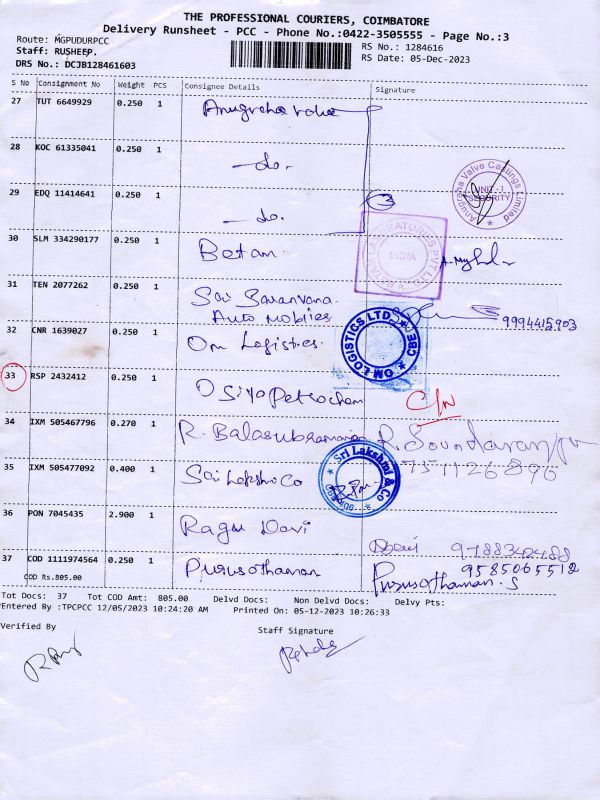 THE PROFESSIONAL COURIERS, COIMBATORE
Delivery Runsheet - PCC - Phone No.:0422-3505555 - Page No.:3
Route: MGPUDURPCC RS No.: 1284616
Staff: RUSHEEP. RS Date: 05-Dec-2023
DRS No.: DCJB128461603
S No Consignment No Weight PCS Consignee Details Signature
27 TUT 6649929 0.250 1 Anugraha Valve
28 KOC 61335041 0.250 1 -do-
29 EDQ 11414641 0.250 1 -do- 3 Anugraha Valve Castings Limited UNIT - I SECURITY
30 SLM 334290177 0.250 1 Betan INDIA
31 TEN 2077262 0.250 1 Sai Saranvana
Auto Mobiles 9994415903
32 CNR 1639027 0.250 1 Om Logistics OM LOGISTICS LTD. CBE
33 RSP 2432412 0.250 1 Osiya Petrochem C/N
34 IXM 505467796 0.270 1 R. Balasubramanian R. Soundararajan
35 IXM 505477092 0.400 1 Sri Lakshmi Co Sri Lakshmi & Co 7511126896
36 PON 7045435 2.900 1 Ragu Davi
37 COD 1111974564 0.250 1 Purusothaman Purusothaman.S 9585065512
COD Rs.805.00
Tot Docs: 37 Tot COD Amt: 805.00 Delvd Docs: Non Delvd Docs: Delvy Pts:
Entered By :TPCPCC 12/05/2023 10:24:20 AM Printed On: 05-12-2023 10:26:33
Verified By Staff Signature